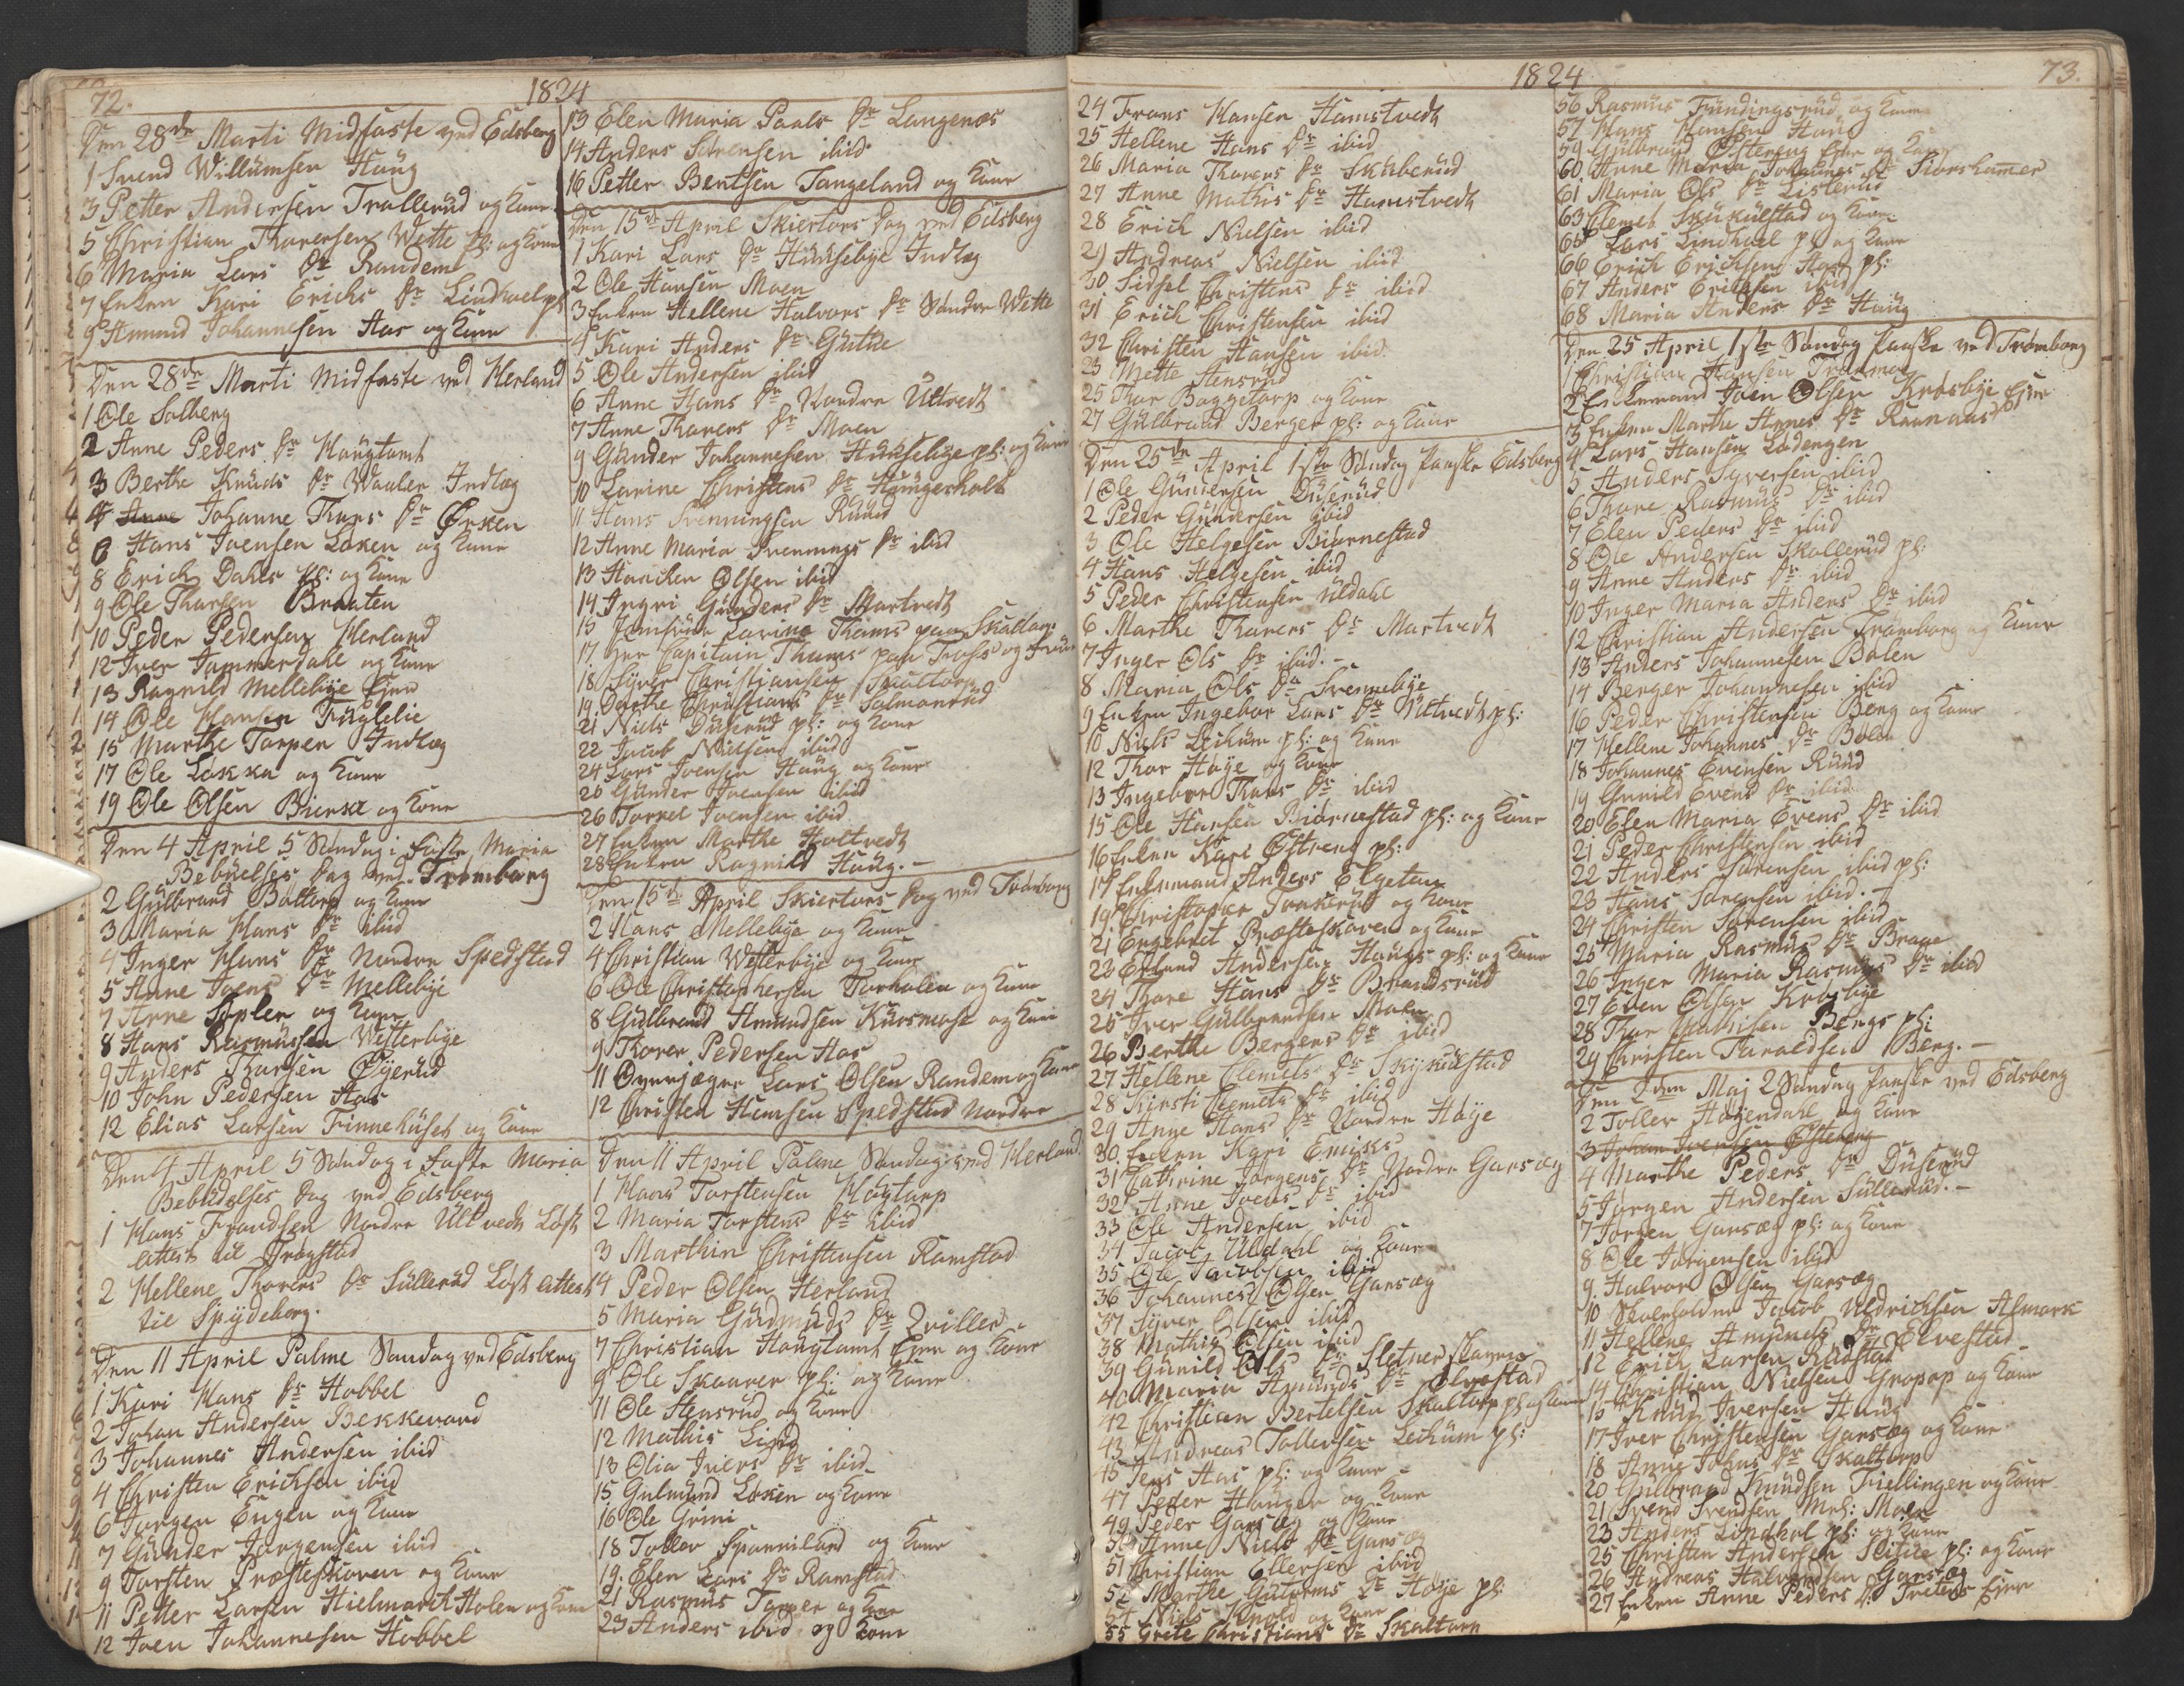 72.
1824
Den 28de Marti Midfaste ved Edsberg
1 Svend Willumsen Haug
3 Petter Andersen Trollerud og Kone
5 Christian Thoresen Wette pl: og Kone
6 Maria Lars Dr Randem
7 Enken Kari Erichs Dr Lindhoel pl
9 Amund Johannesen Aas og Kone
Den 28de Marti Midfaste ved Herland
1 Ole Solberg
2 Anne Peders Dr Haugtomt
3 Berthe Knuds Dr Waaler Indlæg
4 Anne Johanne Thors Dr Ørken
6 Hans Joensen Løken og Kone
8 Erich Dahls pl: og Kone
9 Ole Thorsen Braaten
10 Peder Pedersen Herland
12 Iver Jammerdahl og Kone
13 Ragnild Mellebye Ejer
14 Ole Hansen Fuglelie
15 Marthe Torper Indlæg
17 Ole Løkka og Kone
19 Ole Olsen Bierke og Kone
Den 4 April 5 Søndag i Faste Maria
Bebudelses Dag ved Trømborg
2 Gulbrand Boltorp og Kone
3 Maria Hans Dr ibid
4 Inger Hans Dr Nordre Spedstad
5 Anne Joens Dr Mellebye
7 Arne Toplen og Kone
8 Hans Rasmussen Westerbye
9 Anders Thorsen Øyerud
10 John Pedersen Aas
12 Elias Larsen Finnehuset og Kone
Den 4 April 5 Søndag i Faste Maria
Bebudelses Dag ved Edsberg
1 Hans Frandsen Nordre Ultvedt Løst
attest til Trøgstad
2 Hellene Thorers Dr Sullerud Løst attest
til Spydeberg.
Den 11 April Palme Søndag ved Edsberg
1 Kari Hans Dr Hobbel
2 Johan Andersen Bekkevard
3 Johannes Andersen ibid
4 Christen Erichsen ibid
6 Jørgen Engen og Kone
7 Gunder Jørgensen ibid
9 Torsten Præsteskoven og Kone
11 Petter Larsen Hielmark Holen og Kone
12 Joen Johannesen Hobbel
13 Elen Maria Pauls Dr Langenes
14 Anders Sørensen ibid
16 Petter Bentsen Tangeland og Kone
Den 15de April Skiertors Dag ved Edsberg
1 Kari Lars Dr Huusebye Indlæg
2 Ole Hansen Moen
3 Enken Hellene Halvors Dr Søndre Wette
4 Kari Anders Dr Guthe
5 Ole Andersen ibid
6 Anne Hans Dr Nordre Ultvedt
7 Anne Thorers Dr Moen
9 Gunder Johannesen Huusebye pl: og Kone
10 Larine Christens Dr Haugerholt
11 Hans Svenningsen Ruud
12 Anne Maria Svennings Dr ibid
13 Haachen Olsen ibid
14 Ingri Gunders Dr Martvedt
15 Jomfrue Larine Thams paa Skaltorp
17 Her Capitain Thams paa Foss og Frue
18 Syver Christiansen Skaltorp
19 Dorthe Christians Dr Salmonrud
21 Niels Duserud pl: og Kone
22 Jacob Nielsen ibid
24 Lars Joensen Haug og Kone
25 Gunder Joensen ibid
26 Torkel Joensen ibid
27 Enken Marthe Holtvedt
28 Enken Ragnild Haug. -
Den 15de April Skiertors Dag ved Trømborg
2 Hans Mellebye og Kone
4 Christian Westerbye og Kone
6 Ole Christophersen Torholen og Kone
8 Gulbrand Amundsen Kuosmose og Kone
9 Thorer Pedersen Aas
11 Overjæger Lars Olsen Randem og Kone
12 Christen Hansen Spedstad Nordre
Den 11 April Palme Søndag ved Herland
1 Hans Torstensen Høgtorp
2 Maria Torstens Dr ibid
3 Marthin Christensen Ramstad
4 Peder Olsen Herland
5 Maria Gudmunds Dr Qviller
7 Christian Haugtomt Ejer og Kone
9 Ole Skaarer pl: og Kone
11 Ole Stensrud og Kone
12 Mathis Lund
13 Olia Ivers Dr ibid
15 Gulmund Løken og Kone
16 Ole Grini
18 Toller Sponniland og Kone
19. Elen Lars Dr Ramstad
21 Rasmus Torper og Kone
23 Anders ibid og Kone
1824
73.
24 Frans Hansen Hamstvedt
25 Hellene Hans Dr ibid
26 Maria Thorers Dr Skuberud
27 Anne Mathis Dr Hamstvedt
28 Erich Nielsen ibid
29 Andreas Nielsen ibid
30 Sidsel Christens Dr ibid
31 Erich Christensen ibid
32 Christen Hansen ibid
23 Mette Stensrud
25 Thor Baggetorp og Kone
27 Gulbrand Berger pl: og Kone
Den 25de April 1ste Søndag Paaske Edsberg
1 Ole Gundersen Duserud
2 Peder Gundersen ibid
3 Ole Helgesen Biørnestad
4 Hans Helgesen ibid
5 Peder Christensen Uldahl
6 Marthe Thorers Dr Martvedt
7 Inger Ols Dr ibid. -
8 Maria Ols Dr Svennebye
9 Enken Ingebor Lars Dr Ultvedt pl:
10 Niels Lechum pl: og Kone
12 Thor Høye og Kone
13 Ingebor Thors Dr ibid
15 Ole Hansen Biørnestad pl: og Kone
16 Enken Kari Østreng pl:
17 Enkemand Anders Elgetun
19 Christopher Trøkerud og Kone
21 Engebret Præsteskoven og Kone
23 Erland Andersen Haugs pl: og Kone
24 Thore Hans Dr Brandsrud
25 Iver Gulbrandsen Moen
26 Berthe Bergers Dr ibid
27 Hellene Clemets Dr Skykulstad
28 Kirsti Clemets Dr ibid
29 Anne Hans Dr Nordre Høye
30. Enken Kari Emiks
31 Cathrine Jørgens Dr Nordre Garsæg
32 Anne Joens Dr ibid
33 Ole Andersen ibid
34 Jacob Uldahl og Kone
35 Ole Jacobsen ibid
36 Johannes Olsen Garsæg
37 Syver Olsen ibid
38 Mathis Olsen ibid
39 Gunild Ols Dr Sletner
40 Maria Amunds Dr Elvestad
42 Christian Bertelsen Skaltorp pl: og Kone
43 Andreas Tollersen Lechum pl:
45 Jens Aas pl: og Kone -
47 Peder Hauger og Kone
49 Peder Garsæg og Kone
50 Anne Niels Dr Garsæg
51 Christian Ellersen ibid
52 Marthe Gutorms Dr Høye pl:
54 Niels Knold og Kone
55 Grete Christians Dr Skaltorp
56 Rasmus Fundingsrud og Kone
57 Hans Hansen Haug
59 Gulbrand Østereng Ejer og Kone
60 Anne Maria Johannes Dr Kiørshamer
61 Maria Ols Dr Listerud
63 Clemet Skukulstad og Kone
65 Lars Lindhoel pl: og Kone
66 Erich Erichsen Aas pl:
67 Anders Erichsen ibid
68 Maria Anders Dr Haug
Den 25 April 1ste Søndag Paaske ved Trømborg
1 Christian Hansen
2 Enkemand Joen Olsen Krosbye Ejer
3 Enken Marthe Arnes Dr
4 Lars Hansen Lødengen
5 Anders Syversen ibid
6 Thore Rasmus Dr ibid
7 Elen Peders Dr ibid
8 Ole Andersen Skollerud pl:
9 Anne Anders Dr ibid
10 Inger Maria Anders Dr ibid
12 Christian Andersen Trømborg og Kone
13 Anders Johannesen Bolen
14 Berger Johannesen ibid
16 Peder Christensen Berg og Kone
17 Hellene Johannes Dr Bolen
18 Johannes Evensen Ruud
19 Gunild Evens Dr ibid
20 Elen Maria Evens Dr ibid
21 Peder Christensen ibid
22 Anders Sørensen ibid pl:
23 Hans Sørensen ibid. -
24 Christen Sørensen ibid
25 Maria Rasmus Dr Brage
26 Inger Maria Rasmus Dr ibid
27 Even Olsen Krosbye
28 Thor Mathisen Bergs pl:
29 Christen Taraldsen Berg. -
Den 2den Maj 2 Søndag Paaske ved Edsberg
2 Toller Høgendahl og Kone
3 Johan Joensen Østereng
4 Marthe Peders Dr Duserud
5 Jørgen Andersen Sullerud. -
7 Jørgen Garsæg pl: og Kone
8 Ole Jørgensen ibid
9. Halvor Olsen Garsæg
10 Skoeholdm Jacob Uldrichsen Almark
11 Hellene Amunds Dr Elvestad
12 Erich Larsen Rudstad
14 Christian Nielsen Gropop og Kone
15 Knud Iversen Haug
17 Iver Christensen Garsæg og Kone
18 Anne Johns Dr Skaltorp
20 Gulbrand Knudsen Friellingen og Kone
21 Svend Svendsen Mrk: Moen
23 Anders Lindhol pl: og Kone
25 Christen Andersen Slitue pl: og Kone
26 Andreas Halvorsen Garsæg
27 Enken Anne Peders Dr Freteng Ejer